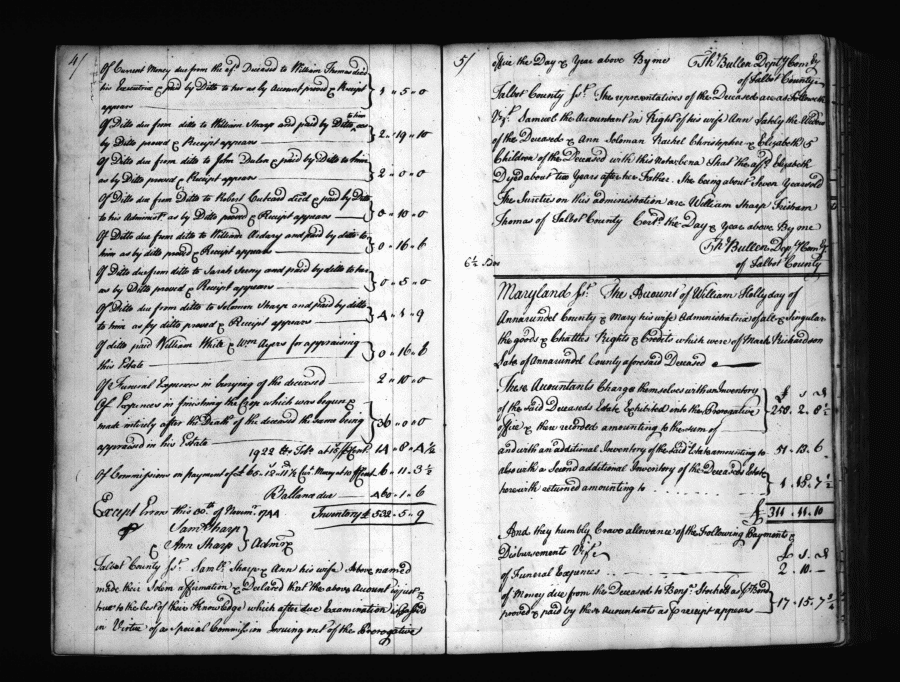 4/
Of Current Money due from the afd. Deceased to William Thomas died
his Executrix & paid by Ditto to her as by Account proved & Receipt
appears 1 " 5 " 0
Of Ditto due from ditto to William Sharp and paid by Ditto to him as
by Ditto proved & Receipt appears 2 " 19 " 10
Of Ditto due from ditto to John Dulin & paid by Ditto to him
as by Ditto proved & Receipt appears 2 " 0 " 0
Of Ditto due from Ditto to Robert died & paid by Ditto
to his Administ. as by Ditto proved & Receipt appears 0 " 10 " 0
Of Ditto due from ditto to William and paid by ditto to
him as by ditto proved & Receipt appears 0 " 16 " 6
Of Ditto due from ditto to Sarah and paid by ditto to her
as by Ditto proved & Receipt appears 0 " 5 " 0
Of Ditto due from ditto to Solomon Sharp and paid by ditto
to him as by ditto proved & Receipt appears 4 " 1 " 9
Of ditto paid William White & Wm Ayers for appraising
this Estate 0 " 16 " 6
Of Funeral Expences in burying of the deceased 2 " 10 " 0
Of Expences in finishing the Crop which was begun &
made intirely after the Death of the deceased the same being
appraised in his Estate 36 " 0 " 0
1922 tts Tobo at
Of Commissions on payment of 6 " 11 " 3½
Ballance due 460 " 1 " 6
Except Errors this Novemr. 1744 Inventory £ 532 " 5 " 9
Saml. Sharp
& Ann Sharp } Admrx
Talbot County Sst. Saml. Sharp & Ann his wife above named
made their Solem affirmation & Declared that the above Account is just &
true to the best of their Knowledge which after due Examination is passed
in Virtue of a Special Commission Issuing out of the Prerogative
5/
office the Day & Year above By me Thos. Bullen Depty Comry
of Talbot County
Talbot County Sst. The representatives of the Deceased are as followeth
Vizt. Samuel the Accountant in Right of his wife Ann Lately the Widow
of the Deceased & Ann Solomon Rachel Christopher & Elizabeth 5
Children of the Deceased with this Notabena That the afd. Elizabeth
Dyed about two Years after her Father. She being about Seven Years old
The Sureties on this administration are William Sharp Tristram
Thomas of Talbot County Certd. the Day & Year above By me
Thos. Bullen Depty Comry
6½ of Talbot County
Maryland Sst. The Account of William Hollyday of
Annarundel County & Mary his wife Administratrix of all & Singular
the goods & Chattles Rights & Credits which were of Mark Richardson
Late of Annarundel County aforesaid Deceased
These Accountants Charge themselves with an Inventory £ S D
of the Said Deceaseds Estate Exhibited into the Prerogative 258 . 2 . 8½
office & there recorded amounting to the sum of
and with an additional Inventory of the Said Estate amounting to 51 . 13 . 6
also with a Second additional Inventory of the Deceaseds Estate
herewith returned amounting to 1 . 15 . 7½
£ 311 . 11 . 10
And they humbly Crave allowance of the Following Payments &
Disbursements Vizt. £ S D
of Funeral Expences 2 . 10 . —
of Money due from the Deceased to Benjn. Stockett as Bond
proved & paid by these Accountants as receipt appears 17 . 15 . 7